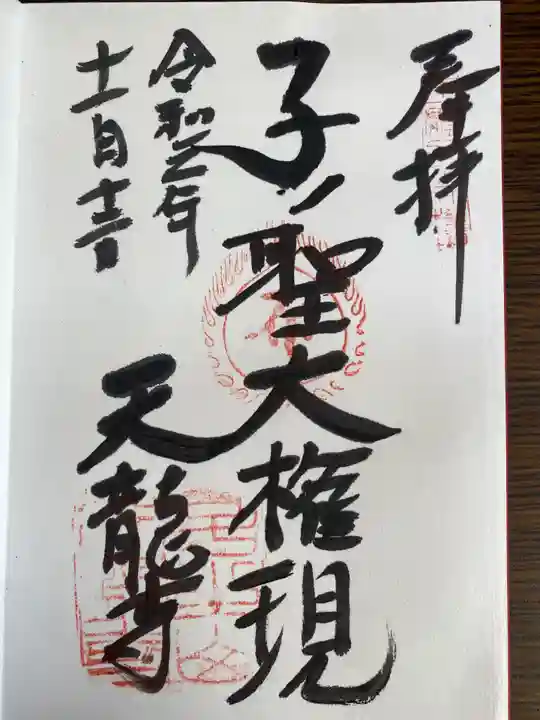 奉拝
子ノ聖大権現
令和年
十一月
天龍寺